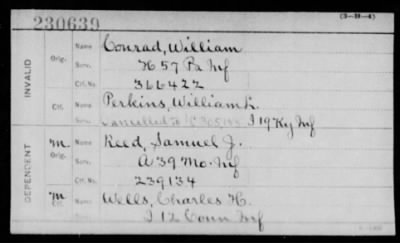 230639
(3-39-6)
INVALID
Orig. Name Conrad, William
Serv. H 57 Pa Inf
Ctf. No. 366422
Ctf. Name Perkins, William L.
Serv. Cancelled I 19 Ky Inf
DEPENDENT
m Orig. Name Reed, Samuel J.
Serv. A 39 Mo. Inf
Ctf. No. 239134
m Ctf. Name Wells, Charles H.
I 12 Conn Inf